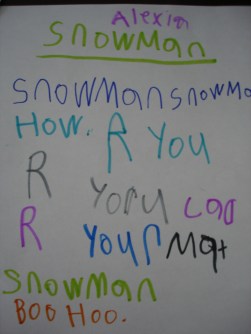 Alexia
SNOWMAN
SNOWMAN SNOWMA
HOW. R YOU
R YORU LAD
R YOUR MAt
SNOWMAN
BOO HOO.